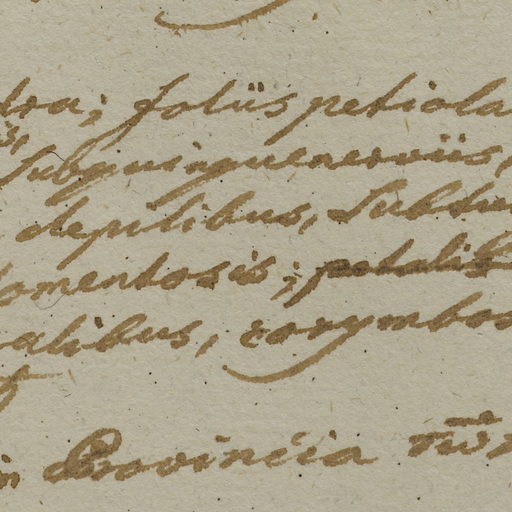 tra; foliis petiola
is, subquinquenerviis,
depilibus, subtus
tomentosis; petalis
alibus, corymbos
in Provincia nov